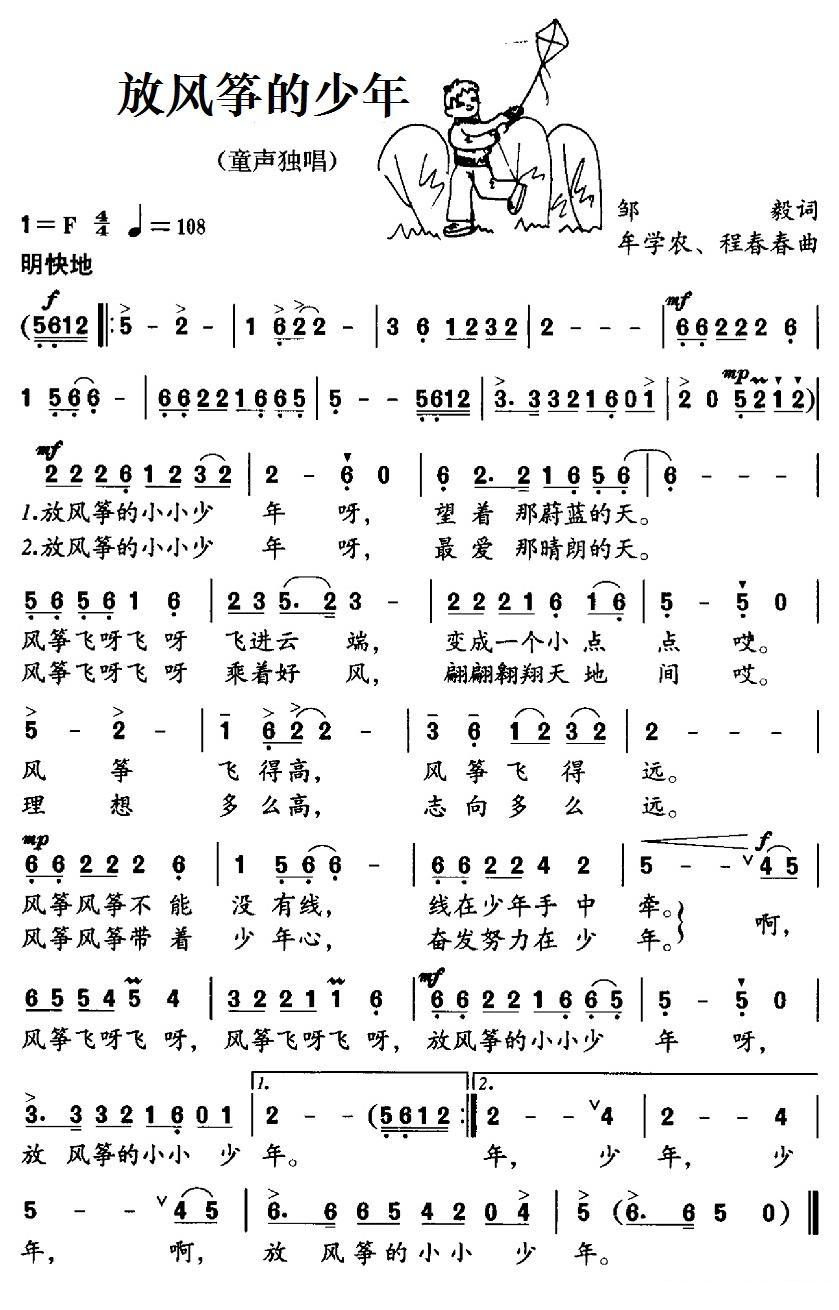 放风筝的少年
（童声独唱）
1=F 4/4 ♩=108
邹 毅词
明快地
牟学农、程春春曲
f mf
(5612 ‖: 5 - 2 - | 1 6 2 2 - | 3 6 1232 | 2 - - - | 66222 6 |
mp
1 5 6 6 - | 66221665 | 5 - - 5612 | 3. 3321601 | 2 0 5212) |
mf
22261232 | 2 - 6 0 | 6 2. 21656 | 6 - - - |
1.放风筝的小小少 年 呀， 望 着 那蔚蓝的天。
2.放风筝的小小少 年 呀， 最 爱 那晴朗的天。
5 6 5 6 1 6 | 2 3 5. 2 3 - | 22216 1 6 | 5 - 5 0 |
风筝飞呀飞 呀 飞进云 端， 变成一个小 点 点 哎。
风筝飞呀飞 呀 乘着好 风， 翩翩翱翔天 地 间 哎。
5 - 2 - | 1 6 2 2 - | 3 6 1 2 3 2 | 2 - - - |
风 筝 飞得高， 风 筝 飞 得 远。
理 想 多么高， 志 向 多 么 远。
mp f
6 6 2 2 2 6 | 1 5 6 6 - | 6 6 2 2 4 2 | 5 - - ∨ 4 5 |
风筝风筝不 能 没 有线， 线在少年手 中 牵。 啊，
风筝风筝带 着 少 年心， 奋发努力在 少 年。
mf
6 5 5 4 5 4 | 3 2 2 1 1 6 | 6 6 2 2 1 6 6 5 | 5 - 5 0 |
风筝飞呀飞 呀， 风筝飞呀飞 呀， 放风筝的小小少 年 呀，
1. 2.
3. 3 3 2 1 6 0 1 | 2 - - (5612 :‖ 2 - - ∨4 | 2 - - 4 |
放 风筝的小小 少 年。 年， 少 年， 少
5 - - ∨ 4 5 | 6. 6 6 5 4 2 0 4 | 5 (6. 6 5 0) ‖
年， 啊， 放 风筝的小小 少 年。